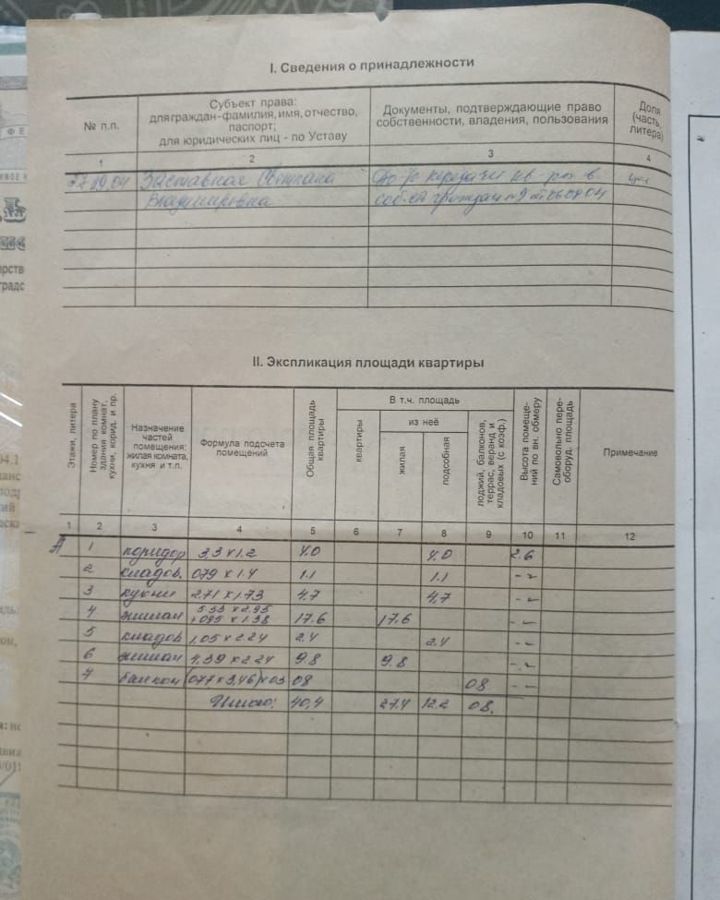 I. Сведения о принадлежности
№ п.п. Субъект права: для граждан-фамилия, имя, отчество, паспорт; для юридических лиц - по Уставу Документы, подтверждающие право собственности, владения, пользования Доля (часть, литера)
1 2 3 4
27 09 04 Заставная Светлана
Владимировна
II. Экспликация площади квартиры
Этажи, литера Номер по плану здания комнат, кухни, корид. и пр. Назначение частей помещения: жилая комната, кухня и т.п. Формула подсчета помещений Общая площадь квартиры В т.ч. площадь квартиры из неё жилая подсобная лоджий, балконов, террас, веранд и кладовых (с коэф.) Высота помещений по вн. обмеру Самовольно переоборуд. площадь Примечание
1 2 3 4 5 6 7 8 9 10 11 12
А 1 коридор 3,3 х 1.2 4.0 4.0 2.6
2 кладов. 079 х 1.4 1.1 1.1 - " -
3 кухни 2.71 х 1.73 4.7 4,7 - " -
4 жилая 5.55 х 2.95 + 095 х 1.38 17.6 17.6 - " -
5 кладов 1,05 х 2.24 2.4 2.4 - " -
6 жилая 4,39 х 2.24 9.8 9.8 - " -
7 балкон (077 х 3,46) х 03 08 08 - " -
Итого: 40,4 27.4 12.2 08.